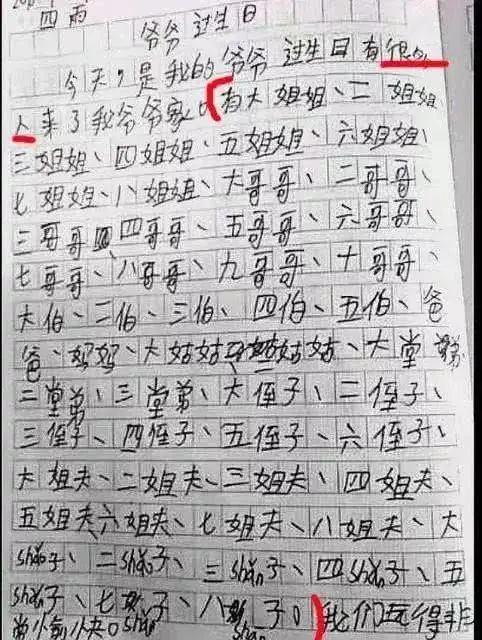 四雨
爷爷过生日
今天，是我的爷爷过生日有很多
人来了我爷爷家。有大姐姐、二姐姐
三姐姐、四姐姐、五姐姐、六姐姐、
七姐姐、八姐姐、大哥哥、二哥哥、
三哥哥、四哥哥、五哥哥、六哥哥、
七哥哥、八哥哥、九哥哥、十哥哥、
大伯、二伯、三伯、四伯、五伯、爸
爸、妈妈、大姑姑、二姑姑、大堂弟
二堂弟、三堂弟、大侄子、二侄子、
三侄子、四侄子、五侄子、六侄子、
大姐夫、二姐夫、三姐夫、四姐夫、
五姐夫、六姐夫、七姐夫、八姐夫、大
shǎo子、二shǎo子、三shǎo子、四shǎo子、五
shǎo子、七shǎo子、八shǎo子。我们玩得非
常